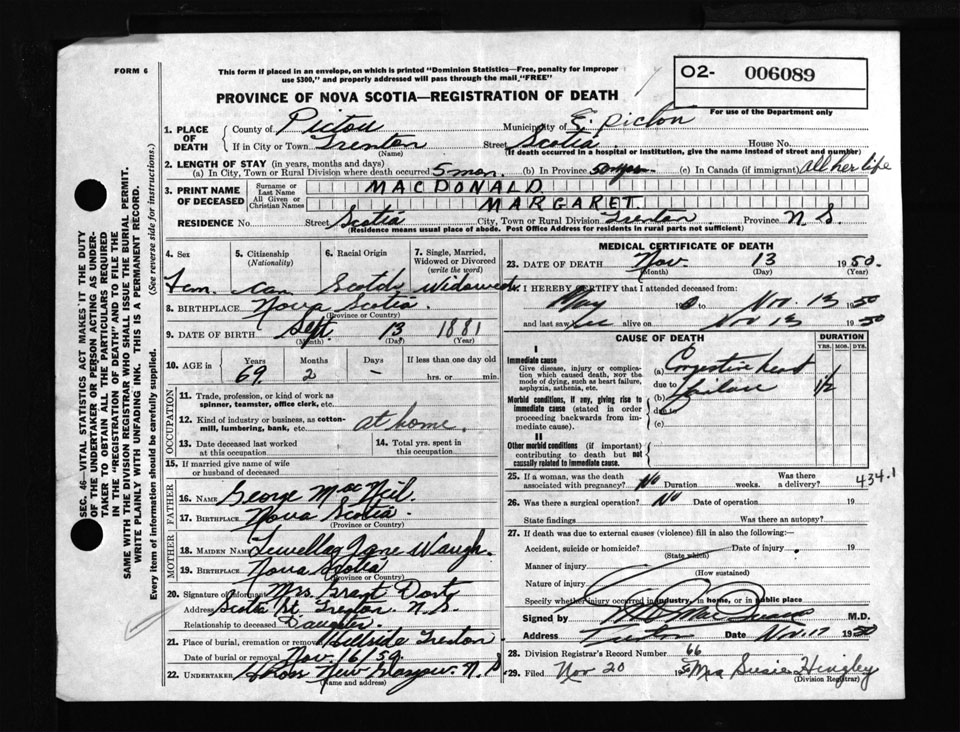 FORM 6
This form if placed in an envelope, on which is printed "Dominion Statistics—Free, penalty for improper
use $300," and properly addressed will pass through the mail "FREE"
O2- 006089
PROVINCE OF NOVA SCOTIA—REGISTRATION OF DEATH
For use of the Department only
1. PLACE OF DEATH
County of Pictou Municipality of E. Pictou
If in City or Town Trenton Street Scotia House No.
(Name) (If death occurred in a hospital or institution, give the name instead of street and number)
2. LENGTH OF STAY (in years, months and days)
(a) In City, Town or Rural Division where death occurred 5 mon. (b) In Province (c) In Canada (if immigrant) all her life
3. PRINT NAME OF DECEASED
Surname or Last Name MACDONALD
All Given or Christian Names MARGARET
RESIDENCE No. Street Scotia City, Town or Rural Division Trenton Province N.S.
(Residence means usual place of abode. Post Office Address for residents in rural parts not sufficient)
4. Sex 5. Citizenship (Nationality) 6. Racial Origin 7. Single, Married, Widowed or Divorced (write the word)
Fem. Can Scotch Widowed
8. BIRTHPLACE Nova Scotia
(Province or Country)
9. DATE OF BIRTH Sept. 13 1881
(Month) (Day) (Year)
10. AGE in Years Months Days If less than one day old
69 2 – hrs. or min.
OCCUPATION
11. Trade, profession, or kind of work as spinner, teamster, office clerk, etc.
12. Kind of industry or business, as cotton-mill, lumbering, bank, etc. at home.
13. Date deceased last worked at this occupation 14. Total yrs. spent in this occupation
15. If married give name of wife or husband of deceased
FATHER
16. NAME George MacNeil
17. BIRTHPLACE Nova Scotia.
(Province or Country)
MOTHER
18. MAIDEN NAME Jane Waugh.
19. BIRTHPLACE Nova Scotia
(Province or Country)
20. Signature of informant Mrs. Grant
Address Scotia St. Trenton. N.S.
Relationship to deceased Daughter
21. Place of burial, cremation or removal Hillside Trenton
Date of burial or removal Nov. 16/50
22. UNDERTAKER New Glasgow. N.S
(Name and address)
MEDICAL CERTIFICATE OF DEATH
23. DATE OF DEATH Nov 13 1950.
(Month) (Day) (Year)
24. I HEREBY CERTIFY that I attended deceased from:
May to Nov. 13 1950
and last saw alive on Nov 13 1950
CAUSE OF DEATH DURATION
YRS. MOS. DYS.
I
Immediate cause
Give disease, injury or complication which caused death, not the mode of dying, such as heart failure, asphyxia, asthenia, etc.
(a) Congestive heart
due to failure 1½
Morbid conditions, if any, giving rise to immediate cause (stated in order proceeding backwards from immediate cause).
(b)
due to
(c)
II
Other morbid conditions (if important) contributing to death but not causally related to immediate cause.
25. If a woman, was the death associated with pregnancy? No Duration weeks. Was there a delivery?
434.1
26. Was there a surgical operation? No Date of operation 19
State findings Was there an autopsy?
27. If death was due to external causes (violence) fill in also the following:—
Accident, suicide or homicide? Date of injury 19
(State which)
Manner of injury
(How sustained)
Nature of injury
Specify whether injury occurred in industry, in home, or in public place
Signed by M.D.
Address Trenton Date Nov. 17 1950
28. Division Registrar's Record Number 66
29. Filed Nov 20 Mrs Susie Hingley
(Division Registrar)
SEC. 46—VITAL STATISTICS ACT MAKES IT THE DUTY
OF THE UNDERTAKER OR PERSON ACTING AS UNDER-
TAKER TO OBTAIN ALL THE PARTICULARS REQUIRED
IN THE "REGISTRATION OF DEATH" AND TO FILE THE
SAME WITH THE DIVISION REGISTRAR WHO SHALL ISSUE THE BURIAL PERMIT.
WRITE PLAINLY WITH UNFADING INK. THIS IS A PERMANENT RECORD.
Every item of information should be carefully supplied. (See reverse side for instructions.)